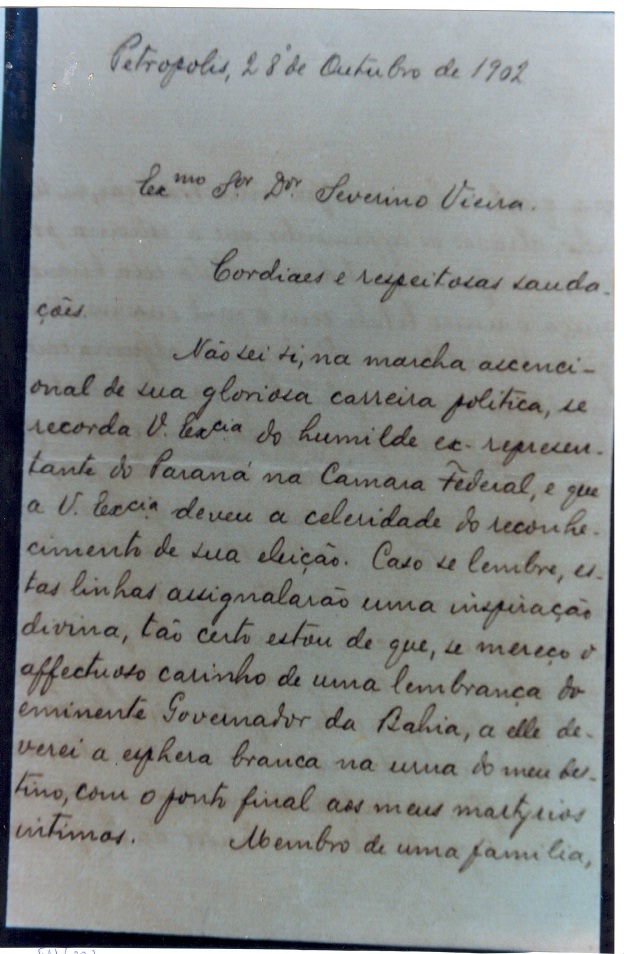 Petropolis, 28 de Outubro de 1902
Ex.mo Sor Dor Severino Vieira.
Cordiaes e respeitosas sauda-
ções.
Não sei si, na marcha ascenci-
onal de sua gloriosa carreira politica, se
recorda V. Excia do humilde ex-represen-
tante do Paraná na Camara Federal, e que
a V. Excia deveu a celeridade do reconhe-
cimento de sua eleição. Caso se lembre, es-
tas linhas assignalarão uma inspiração
divina, tão certo estou de que, se mereço o
affectuoso carinho de uma lembrança do
eminente Governador da Bahia, a elle de-
verei a esphera branca na urna do meu des-
tino, com o ponto final aos meus martyrios
intimos. Membro de uma familia,